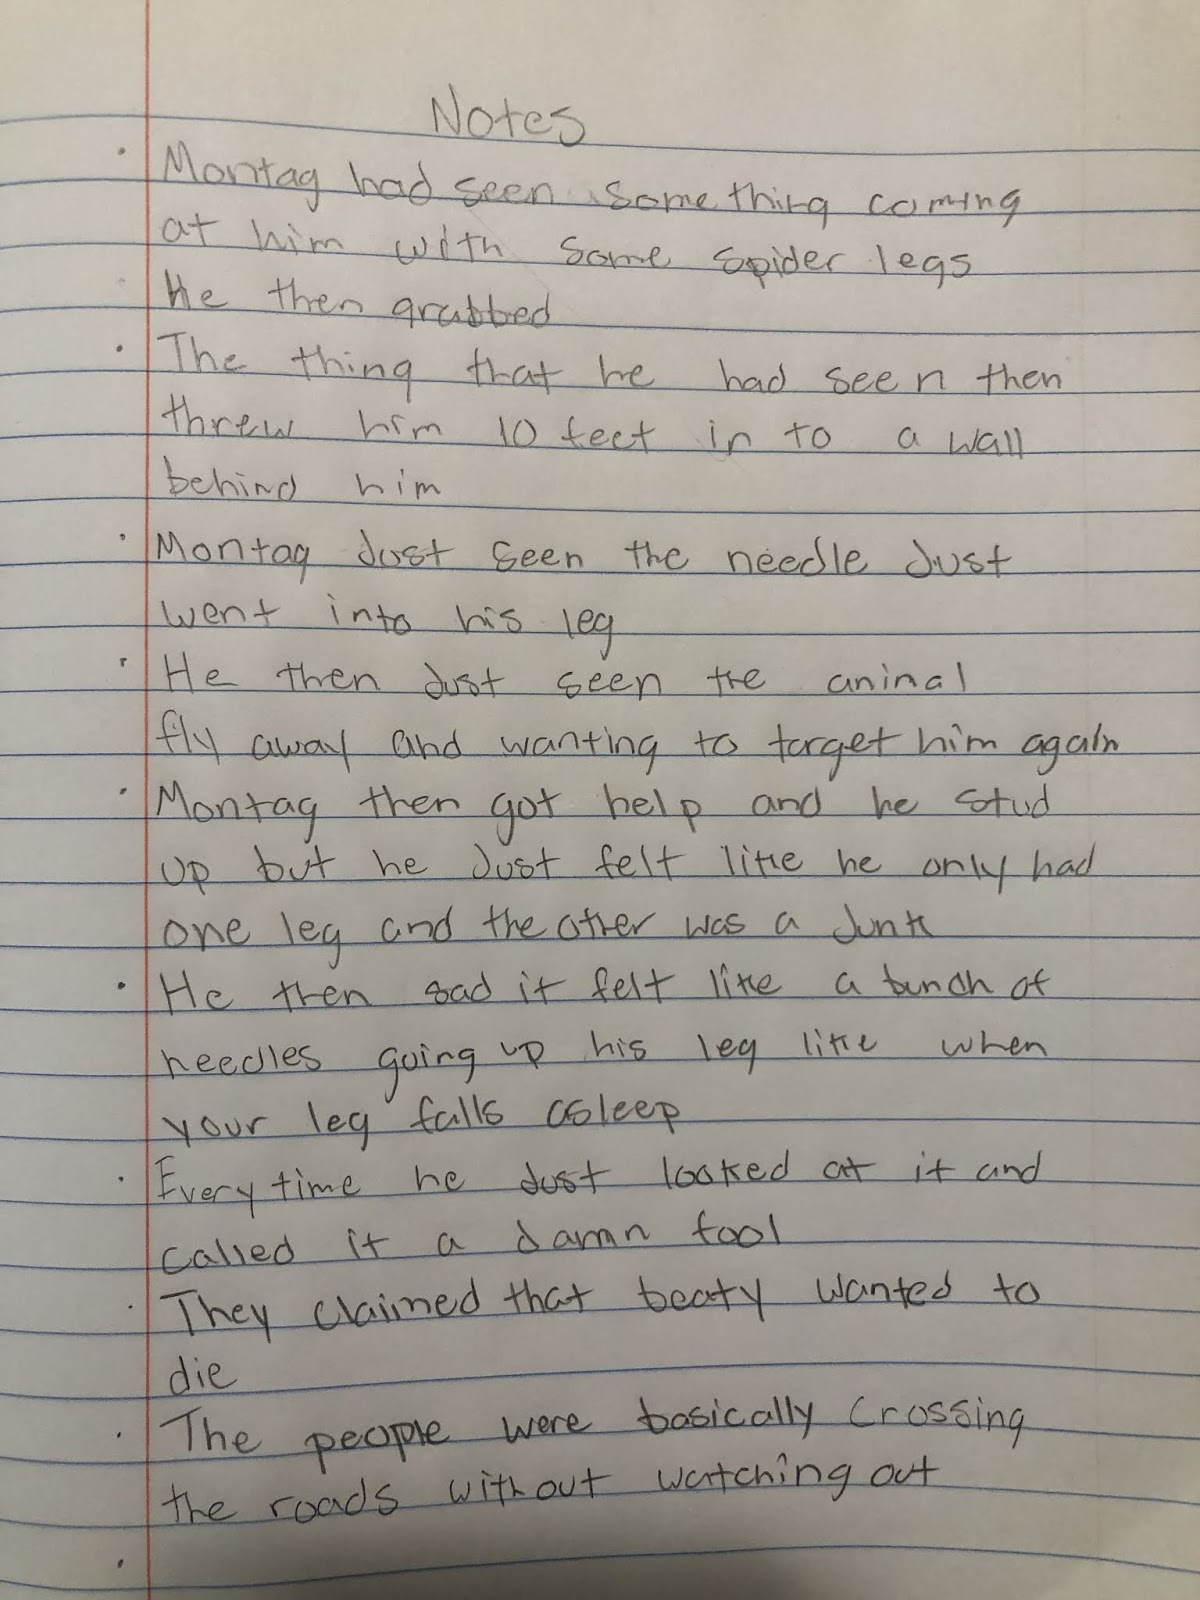 Notes
• Montag had seen something coming
at him with some spider legs
He then grabbed
• The thing that he had seen then
threw him 10 feet in to a wall
behind him
• Montag Just seen the needle Just
went into his leg
• He then Just seen the aninal
fly away and wanting to target him again
• Montag then got help and he stud
up but he Just felt like he only had
one leg and the other was a Junk
• He then sad it felt like a bunch of
needles going up his leg like when
your leg falls asleep
• Every time he Just looked at it and
called it a damn fool
• They claimed that beaty wanted to
die
• The people were basically crossing
the roads without watching out
•